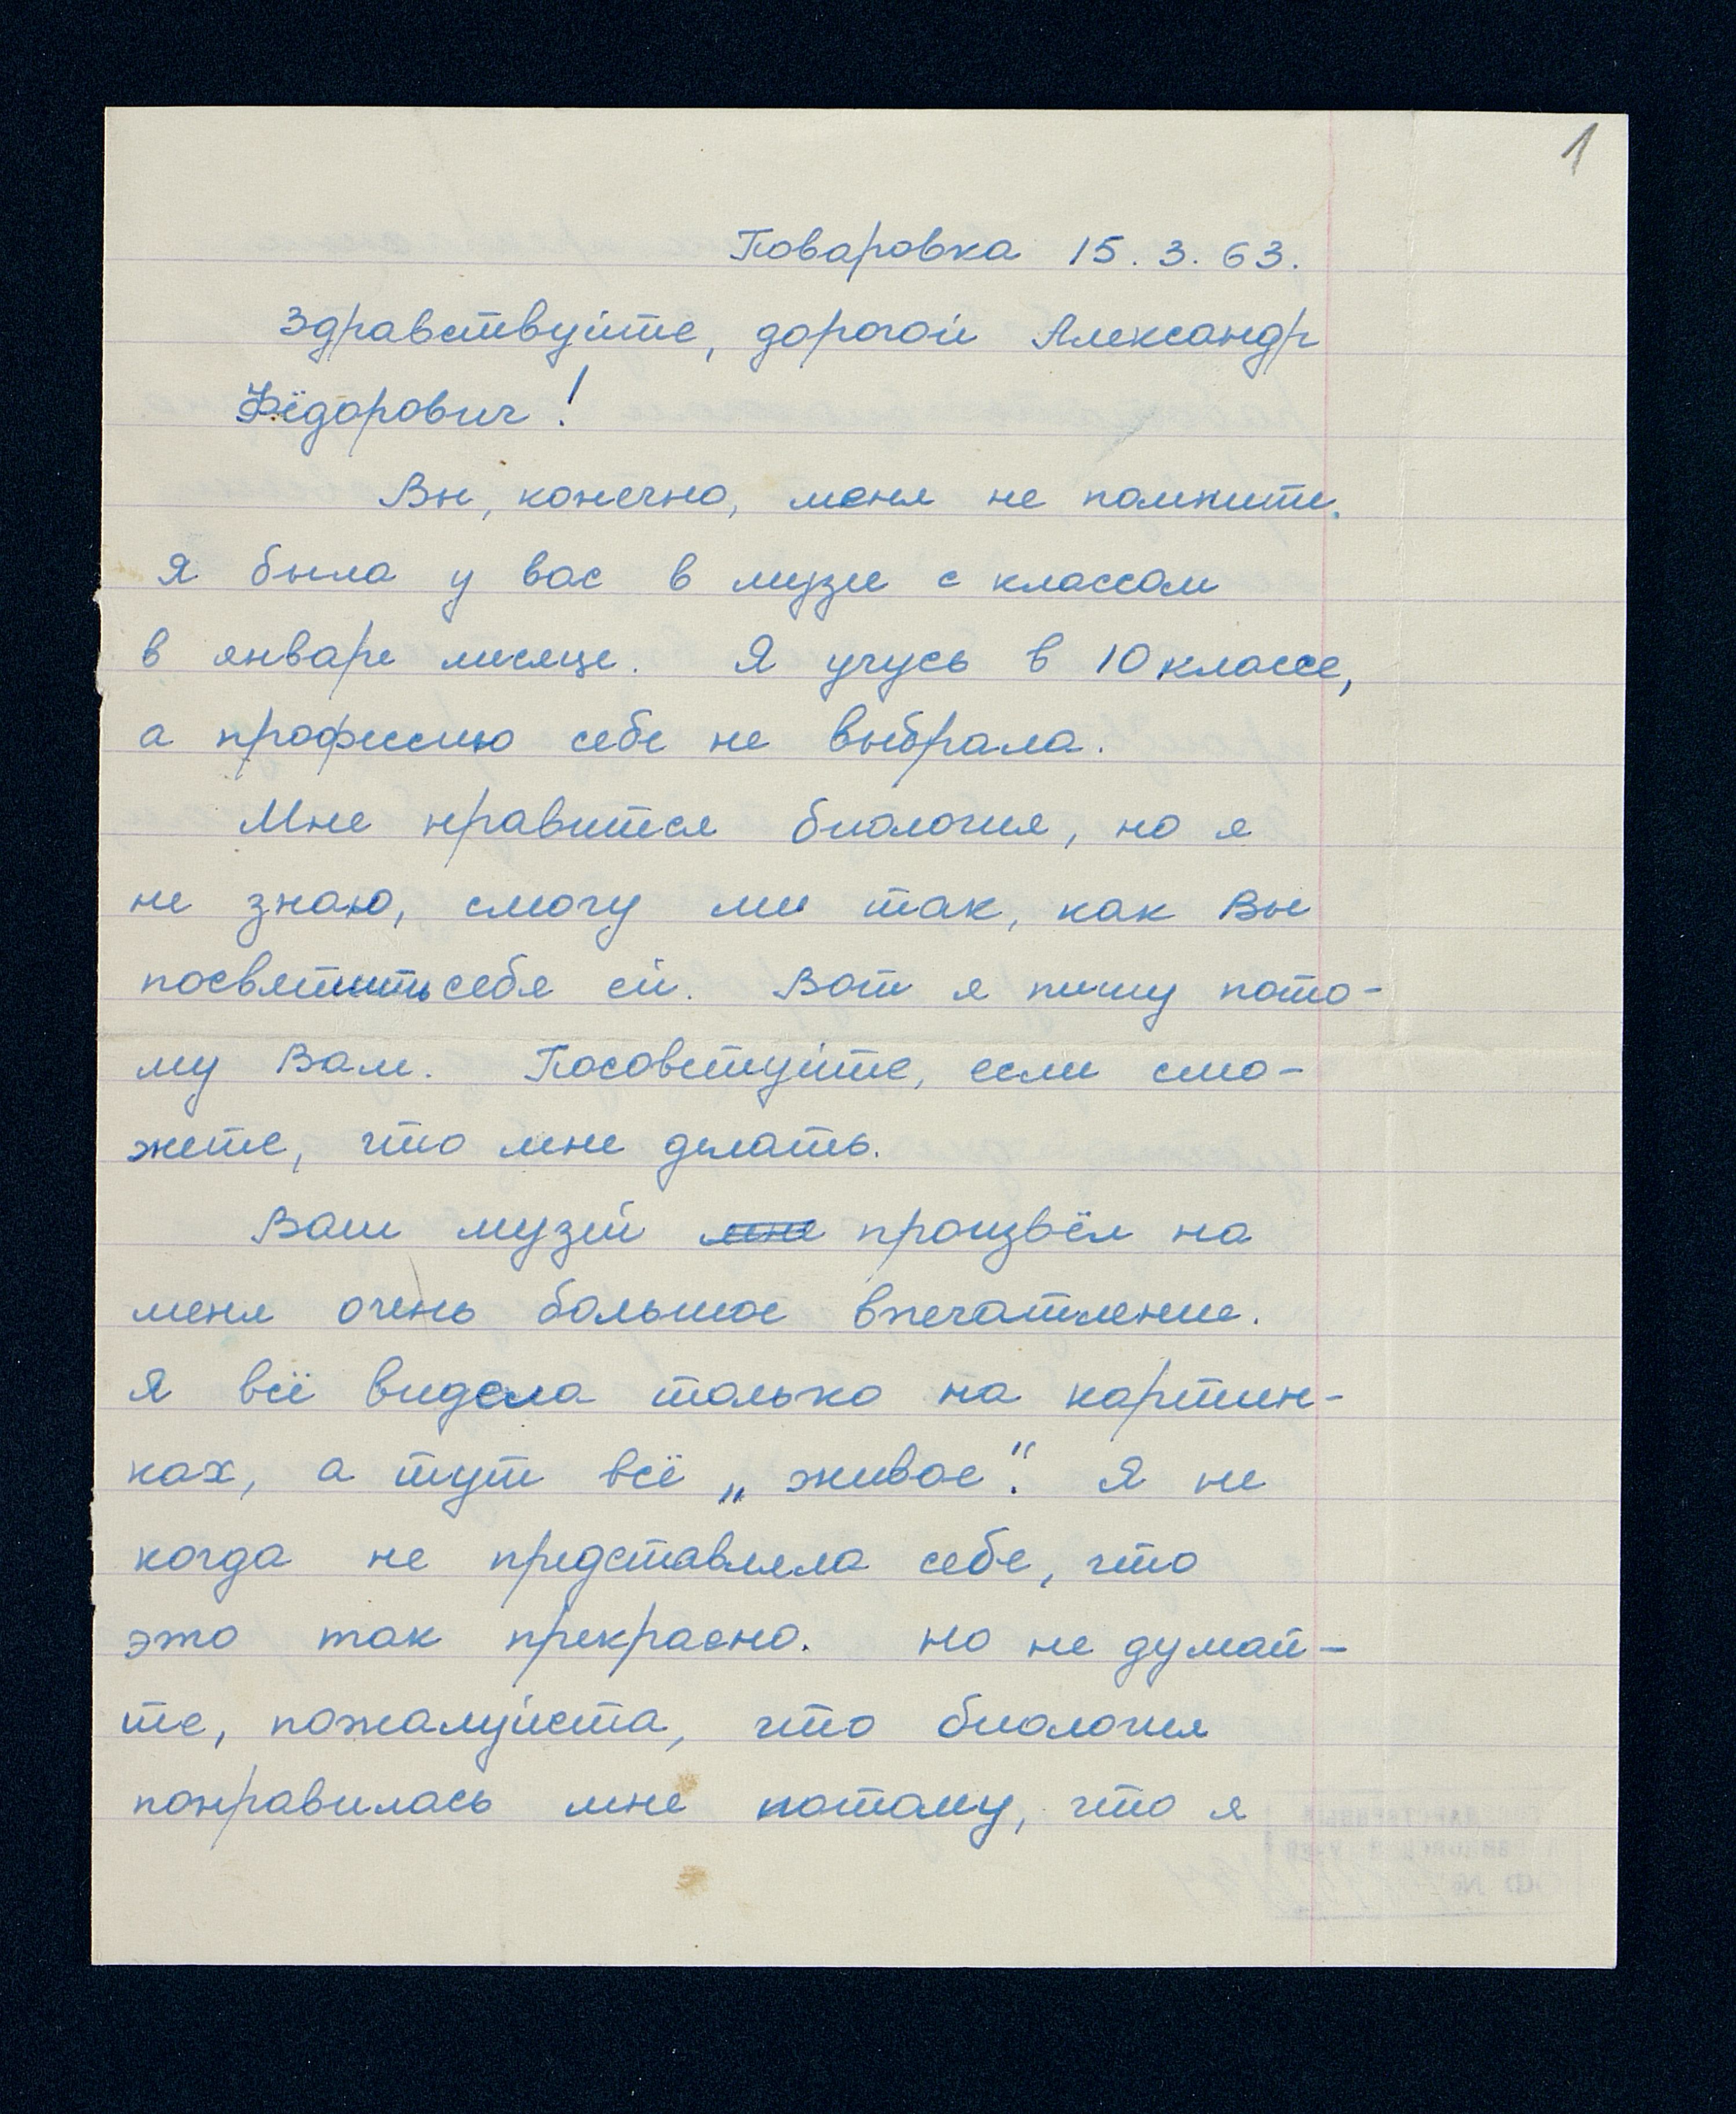 1
Поваровка 15.3.63.
Здравствуйте, дорогой Александр
Фёдорович!
Вы, конечно, меня не помните.
Я была у вас в музее с классом
в январе месяце. Я учусь в 10 классе,
а профессию себе не выбрала.
Мне нравится биология, но я
не знаю, смогу ли так, как Вы
посвятить себя ей. Вот я пишу пото-
му Вам. Посоветуйте, если смо-
жете, что мне делать.
Ваш музей мне произвёл на
меня очень большое впечатление.
Я всё видела только на картин-
ках, а тут всё „живое“. Я не
когда не представляла себе, что
это так прекрасно. Но не думай-
те, пожалуйста, что биология
понравилась мне потому, что я